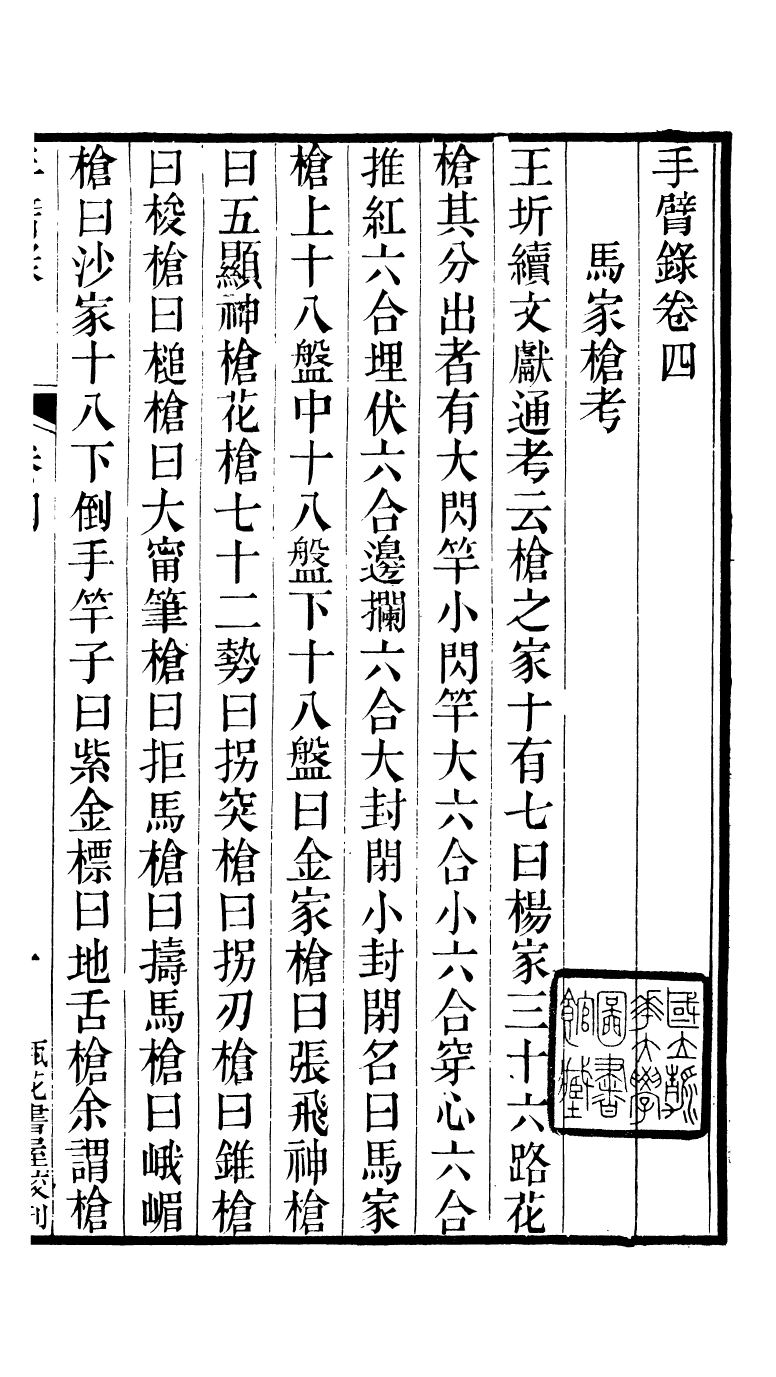 手臂錄卷四
馬家槍考
王圻續文獻通考云槍之家十有七曰楊家三十六路花
槍其分出者有大閃竿小閃竿大六合小六合穿心六合
推紅六合埋伏六合邊攔六合大封閉小封閉名曰馬家
槍上十八盤中十八盤下十八盤曰金家槍曰張飛神槍
曰五顯神槍花槍七十二勢曰拐突槍曰拐刃槍曰錐槍
曰梭槍曰槌槍曰大甯筆槍曰拒馬槍曰擣馬槍曰峨嵋
槍曰沙家十八下倒手竿子曰紫金標曰地舌槍余謂槍
國立
大學
圖書
館藏